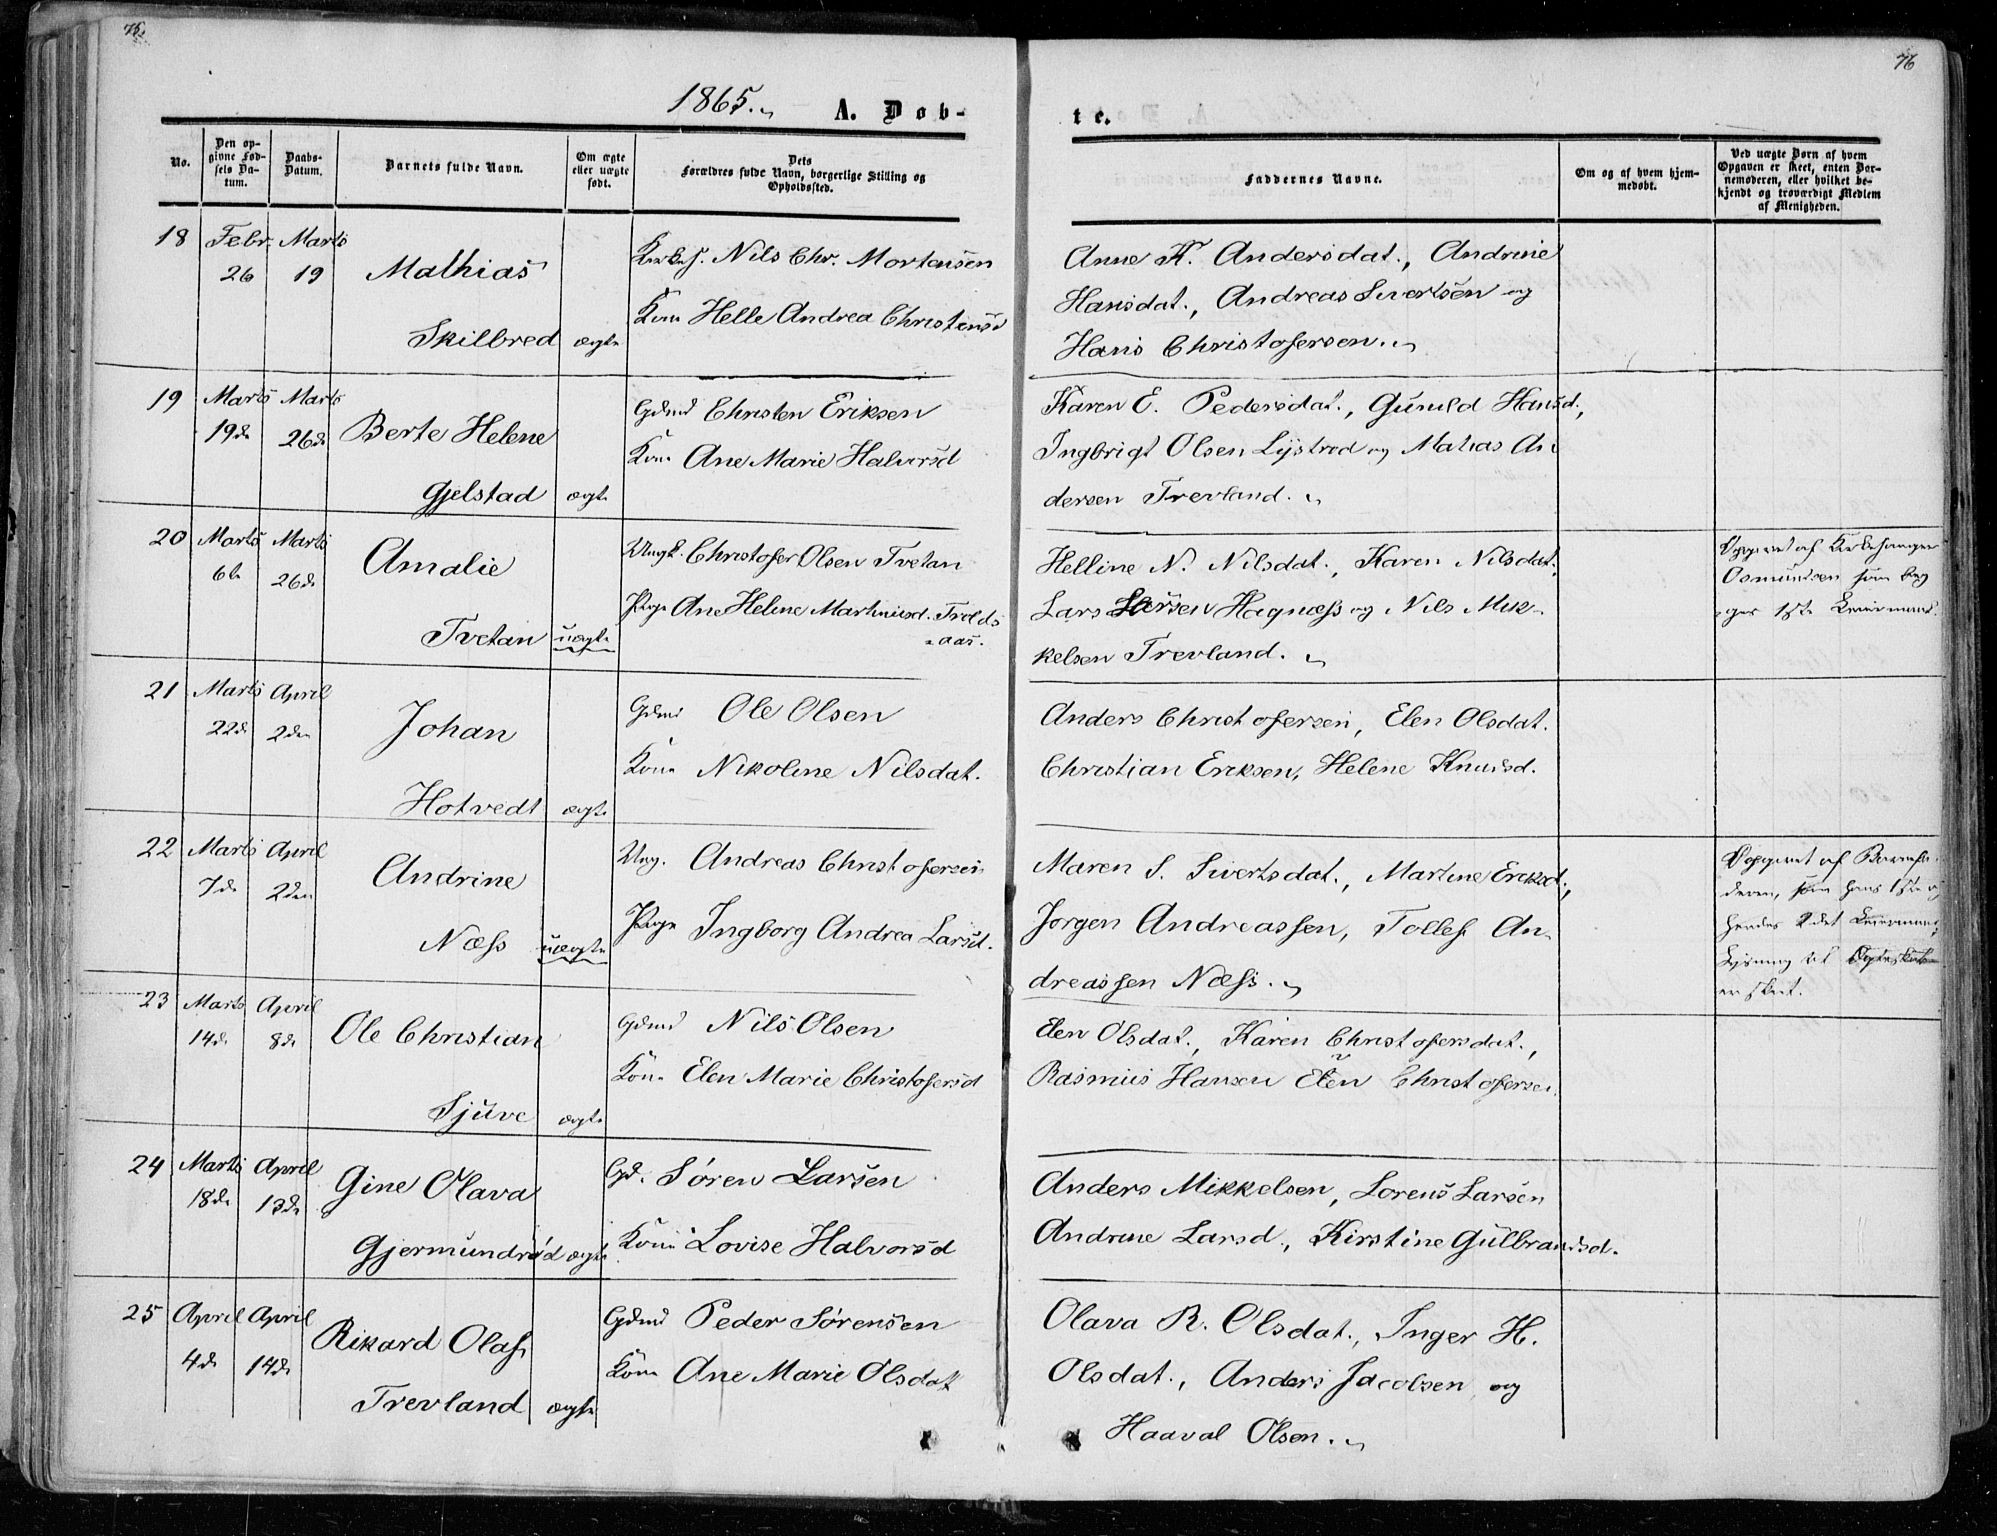 76.
76
1865.
A. Døb-
te.
No.
Den op-
givne Fød-
sels Da-
tum.
Daabs-
Datum.
Barnets fulde Navn.
Om ægte
eller uægte
født.
Dets
Forældres fulde Navn, borgerlige Stilling og
Opholdssted.
Faddernes Navne.
Om og af hvem hjem-
medøbt.
Ved uægte Børn af hvem
Opgaven er skeet, enten Bar-
nemoderen, eller hvilket be-
kjendt og troværdigt Medlem
af Menigheden.
18 Febr. Marts
26 19 Mathias
Skilbred ægte
Kirkes. Nils Chr. Mortensen
Kone Helle Andrea Christensd
Anne K. Andersdat., Andrine
Hansdat., Andreas Sivertsen og
Hans Christofersen.
19 Marts Marts
19de 26de Berte Helene
Gjelstad ægte
Gdmd Christen Eriksen
Kone Ane Marie Halvorsd
Karen E. Pedersdat., Gunild Hansd.,
Ingbrigt Olsen Lystrod og Matias An
dersen Trevland.
20 Marts Marts
6te 26de Amalie
Tvetan uægte
Ungk. Christofer Olsen Tvetan
Pige Ane Helene Martiniusd. Trolds
-aas.
Helline N. Nilsdat., Karen Nilsdat.,
Lars Larsen Hagnæss og Nils Mik-
kelsen Trevland.
Opgivet af Kirkesanger
Osmundsen som beg
-ges 1ste Leiermaal.
21 Marts April
22de 2den Johan
Hotvedt ægte
Gdmd Ole Olsen
Kone Nikoline Nilsdat.
Anders Christofersen, Elen Olsdat.
Christian Eriksen, Helene Knudsd.
22 Marts April
7de 2den Andrine
Næss uægte
Ung. Andreas Christofersen
Pige Ingborg Andrea Larsd.
Maren S. Sivertsdat., Martine Eriksd.,
Jorgen Andreassen, Tollef An-
dreassen Næss.
Opgivet af Barnefa-
deren, som hans 1ste og
hendes 2det Leiermaal;
Lysning til Ægteskab
er skeet.
23 Marts April
14de 8de Ole Christian
Sjuve ægte
Gdmd Nils Olsen
Kone Elen Marie Christofersd
Elen Olsdat., Karen Christofersdat.,
Rasmus Hansen Elen Christofersen
24 Marts April
18de 13de Gine Olava
Gjermundrød ægte
Gd. Søren Larsen
Kone Lovise Halvorsd
Anders Mikkelsen, Lorens Larsen
Andrine Larsd., Kirstine Gulbrandsd.
25 April April
4de 14de Rikard Olaf
Trevland ægte
Gdmd Peder Sørensen
Kone Ane Marie Olsdat
Olava R. Olsdat., Inger H.
Olsdat., Anders Jacobsen og
Haaval Olsen.